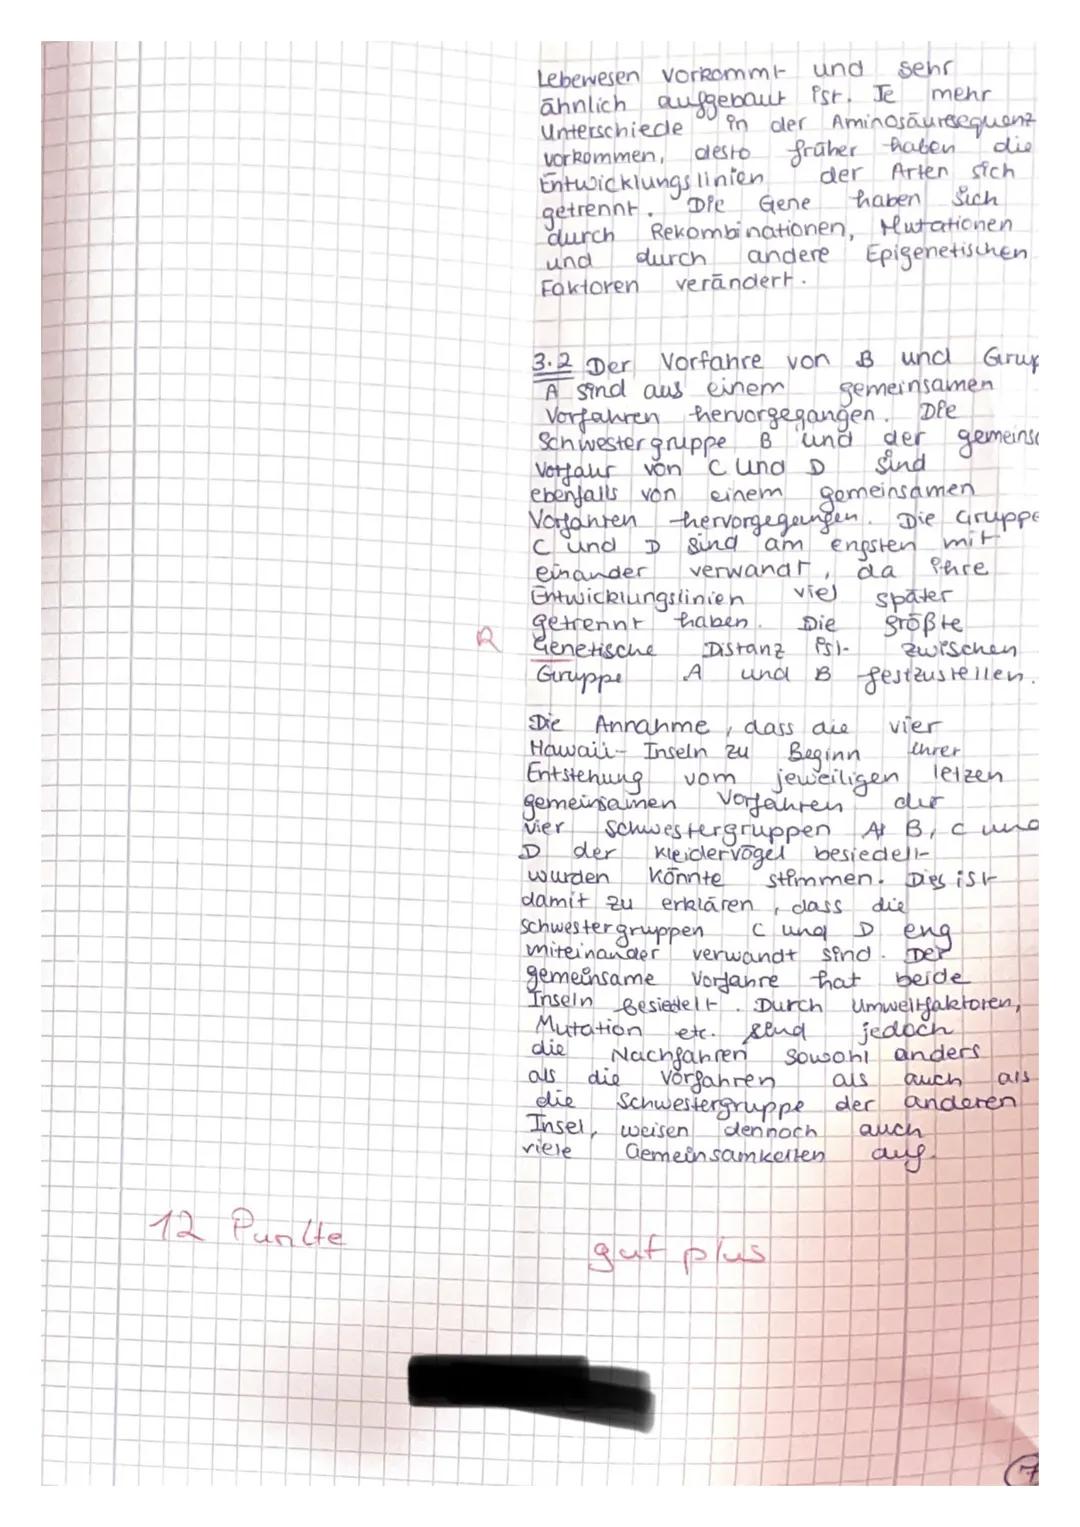 Lebewesen vorkommt und sehr
ähnlich aufgebaut ist. Je mehr
Unterschiede in der Aminosäuresequenz
vorkommen, desto früher haben die
Entwicklungslinien der Arten sich
getrennt. Die Gene haben sich
durch Rekombinationen, Mutationen
und durch andere Epigenetischen
Faktoren verändert.
3.2 Der Vorfahre von B und Grup
A sind aus einem gemeinsamen
Vorfahren hervorgegangen. Die
Schwestergruppe B und der gemeins
Vorfaur von C und D sind
ebenfalls von einem gemeinsamen
Vorfahren hervorgegangen. Die Gruppe
C und D sind am engsten mit
einander verwandt, da ihre
Entwicklungslinien viel später
getrennt haben. Die größte
R Genetische Distanz ist zwischen
Gruppe A und B festzustellen.
Die Annahme, dass die vier
Hawaii- Inseln zu Beginn ihrer
Entstehung vom jeweiligen letzen
gemeinsamen Vorfahren der
vier Schwestergruppen A B, C und
D der Kleidervögel besiedelt
wurden könnte stimmen. Dies ist
damit zu erklären, dass die
Schwestergruppen C und D eng
miteinander verwandt sind. Der
gemeinsame Vorfahre hat beide
Inseln besiedelt. Durch Umweltfaktoren,
Mutation etc. sind jedoch
die Nachfahren sowohl anders
als die Vorfahren als auch als
die Schwestergruppe der anderen
Insel, weisen dennoch auch
viele Gemeinsamkeiten auf.
12 Punkte
gut plus
7